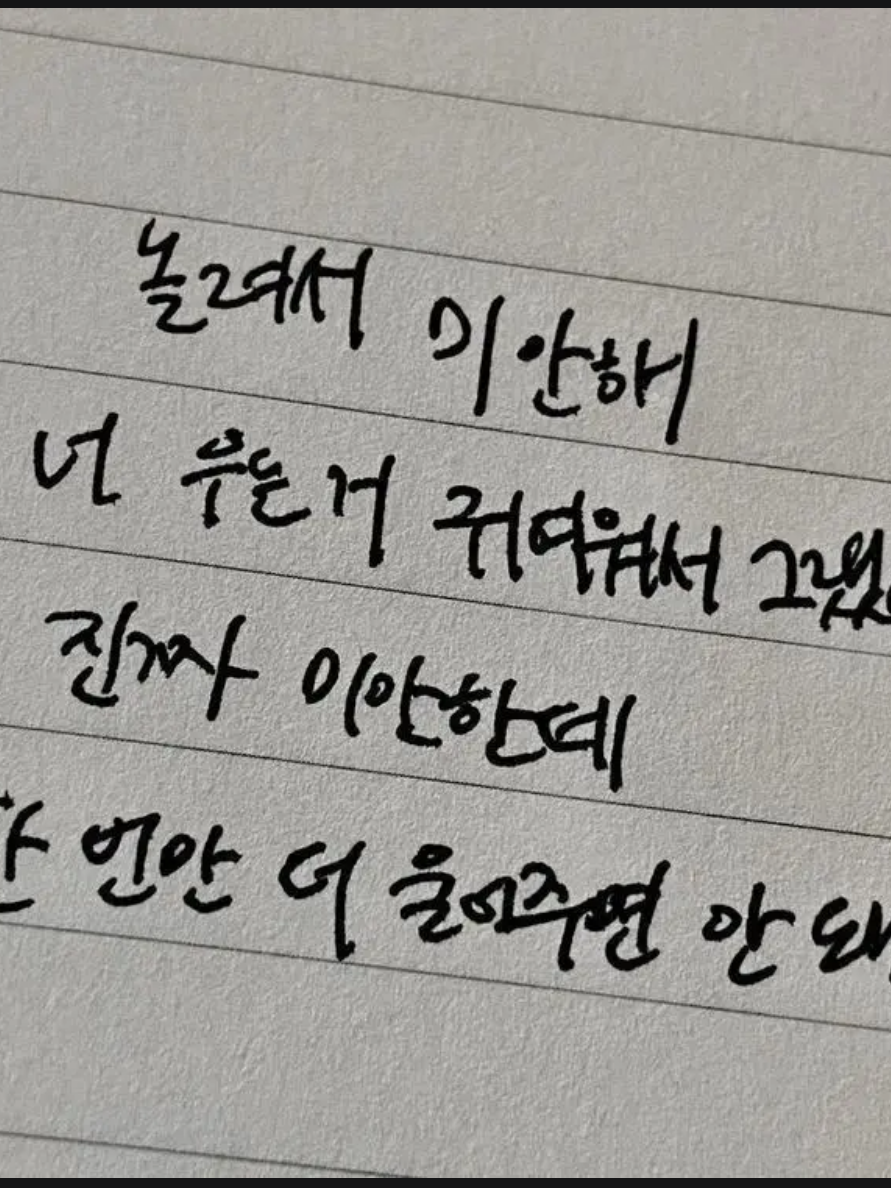 놀려서 미안해
너 우는 거 귀여워서 그랬
진짜 미안한데
한 번만 더 울어주면 안 돼